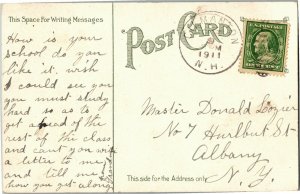 This Space For Writing Messages
How is your
school do you
like it, wish
I could see you
you must study
hard so as to
get ahead of the
rest of the class
and cant you write
a letter to me
and tell me
how you get along
POST CARD
M
1911
N.H.
Master Donald Lozier
No 7 Hurlbut St
Albany
N.Y.
This side for the Address only